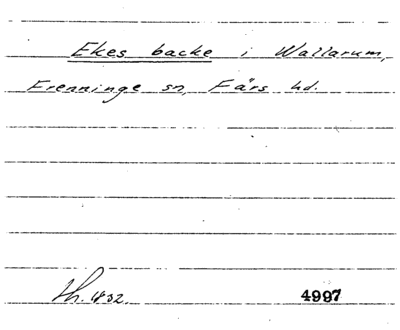 Ekes backe i Wallarum,
Frenninge sn, Färs hd.
Th. 1832. 4997